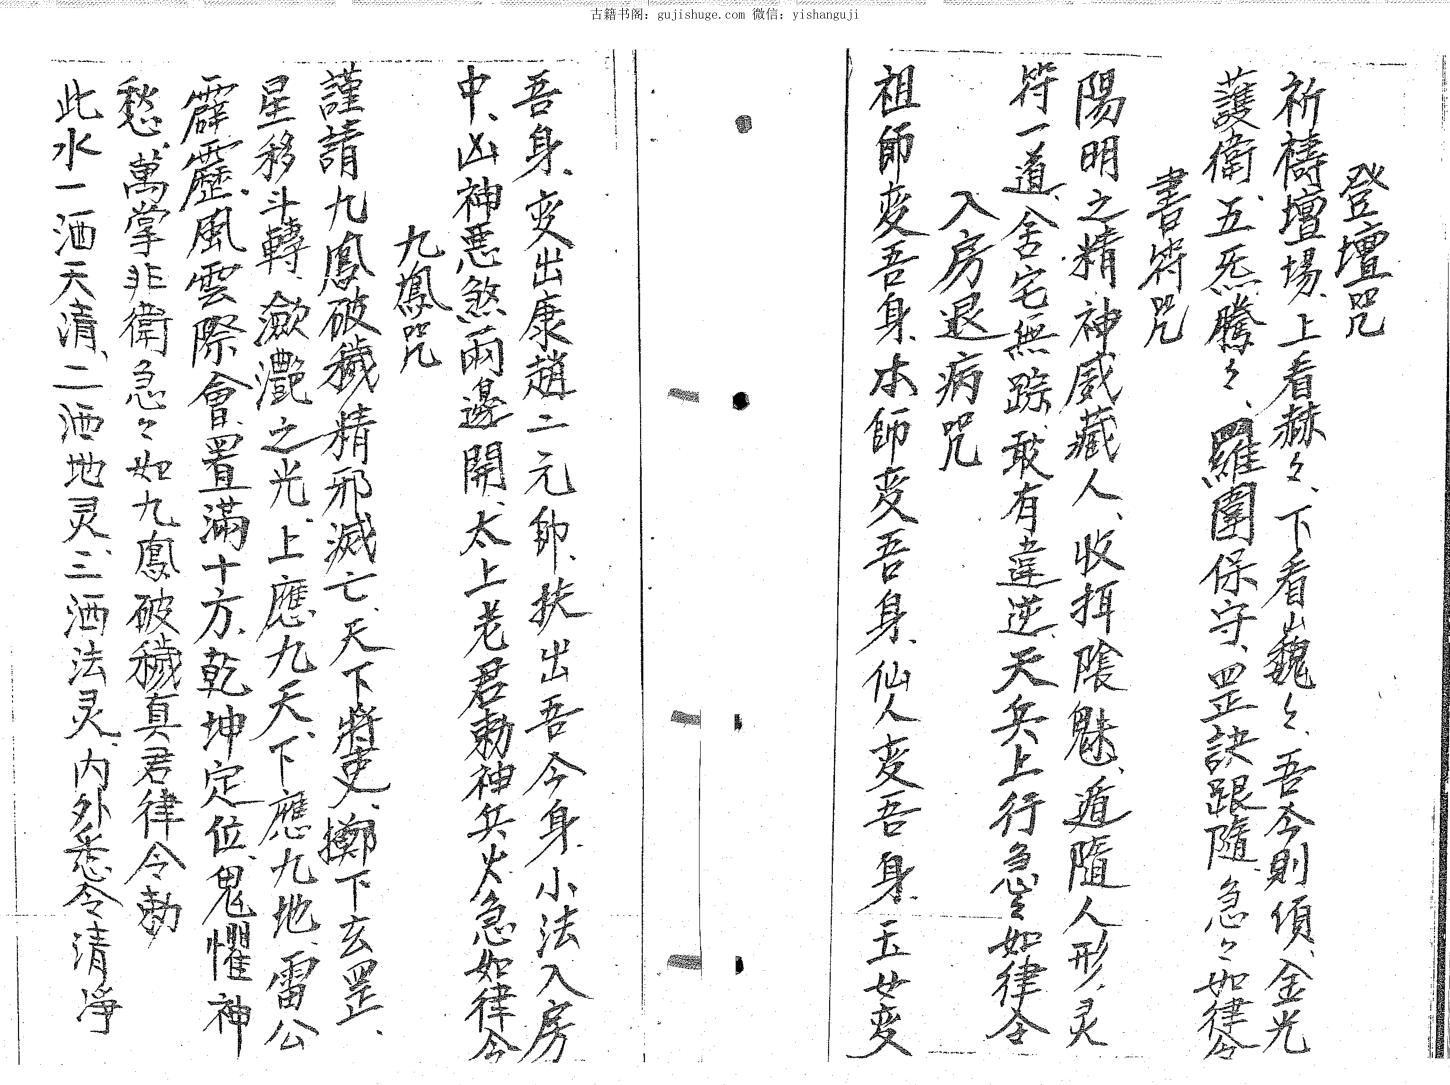 古籍书阁：gujishuge.com 微信：yishanguji
登壇咒
祈禱壇場、上看赫々、下看巍々、吾今則傾、金光
護衛、五炁騰々、羅圍保守、罡訣跟隨、急々如律令
書符咒
陽明之精、神威藏人、收拜陰魅、遁隨人形、灵
符一道、舍宅無踪、敢有違逆、天兵上行急々如律令
入房退病咒
祖師変吾身、本師変吾身、仙人変吾身、玉女変
吾身、変出康趙二元帥、扶出吾今身、小法入房
中、凶神悪煞兩邊開、太上老君勅神兵火急如律令
九鳳咒
謹請九鳳破穢精邪滅亡、天下將吏、擲下玄罡、
星移斗轉、瀲灩之光、上應九天、下應九地、雷公
霹靂、風雲際會、置滿十方、乾坤定位、鬼懼神
愁、萬掌非衛急々如九鳳破穢真君律令勅
此水一洒天清、二洒地灵、三洒法灵、内外悉令清淨